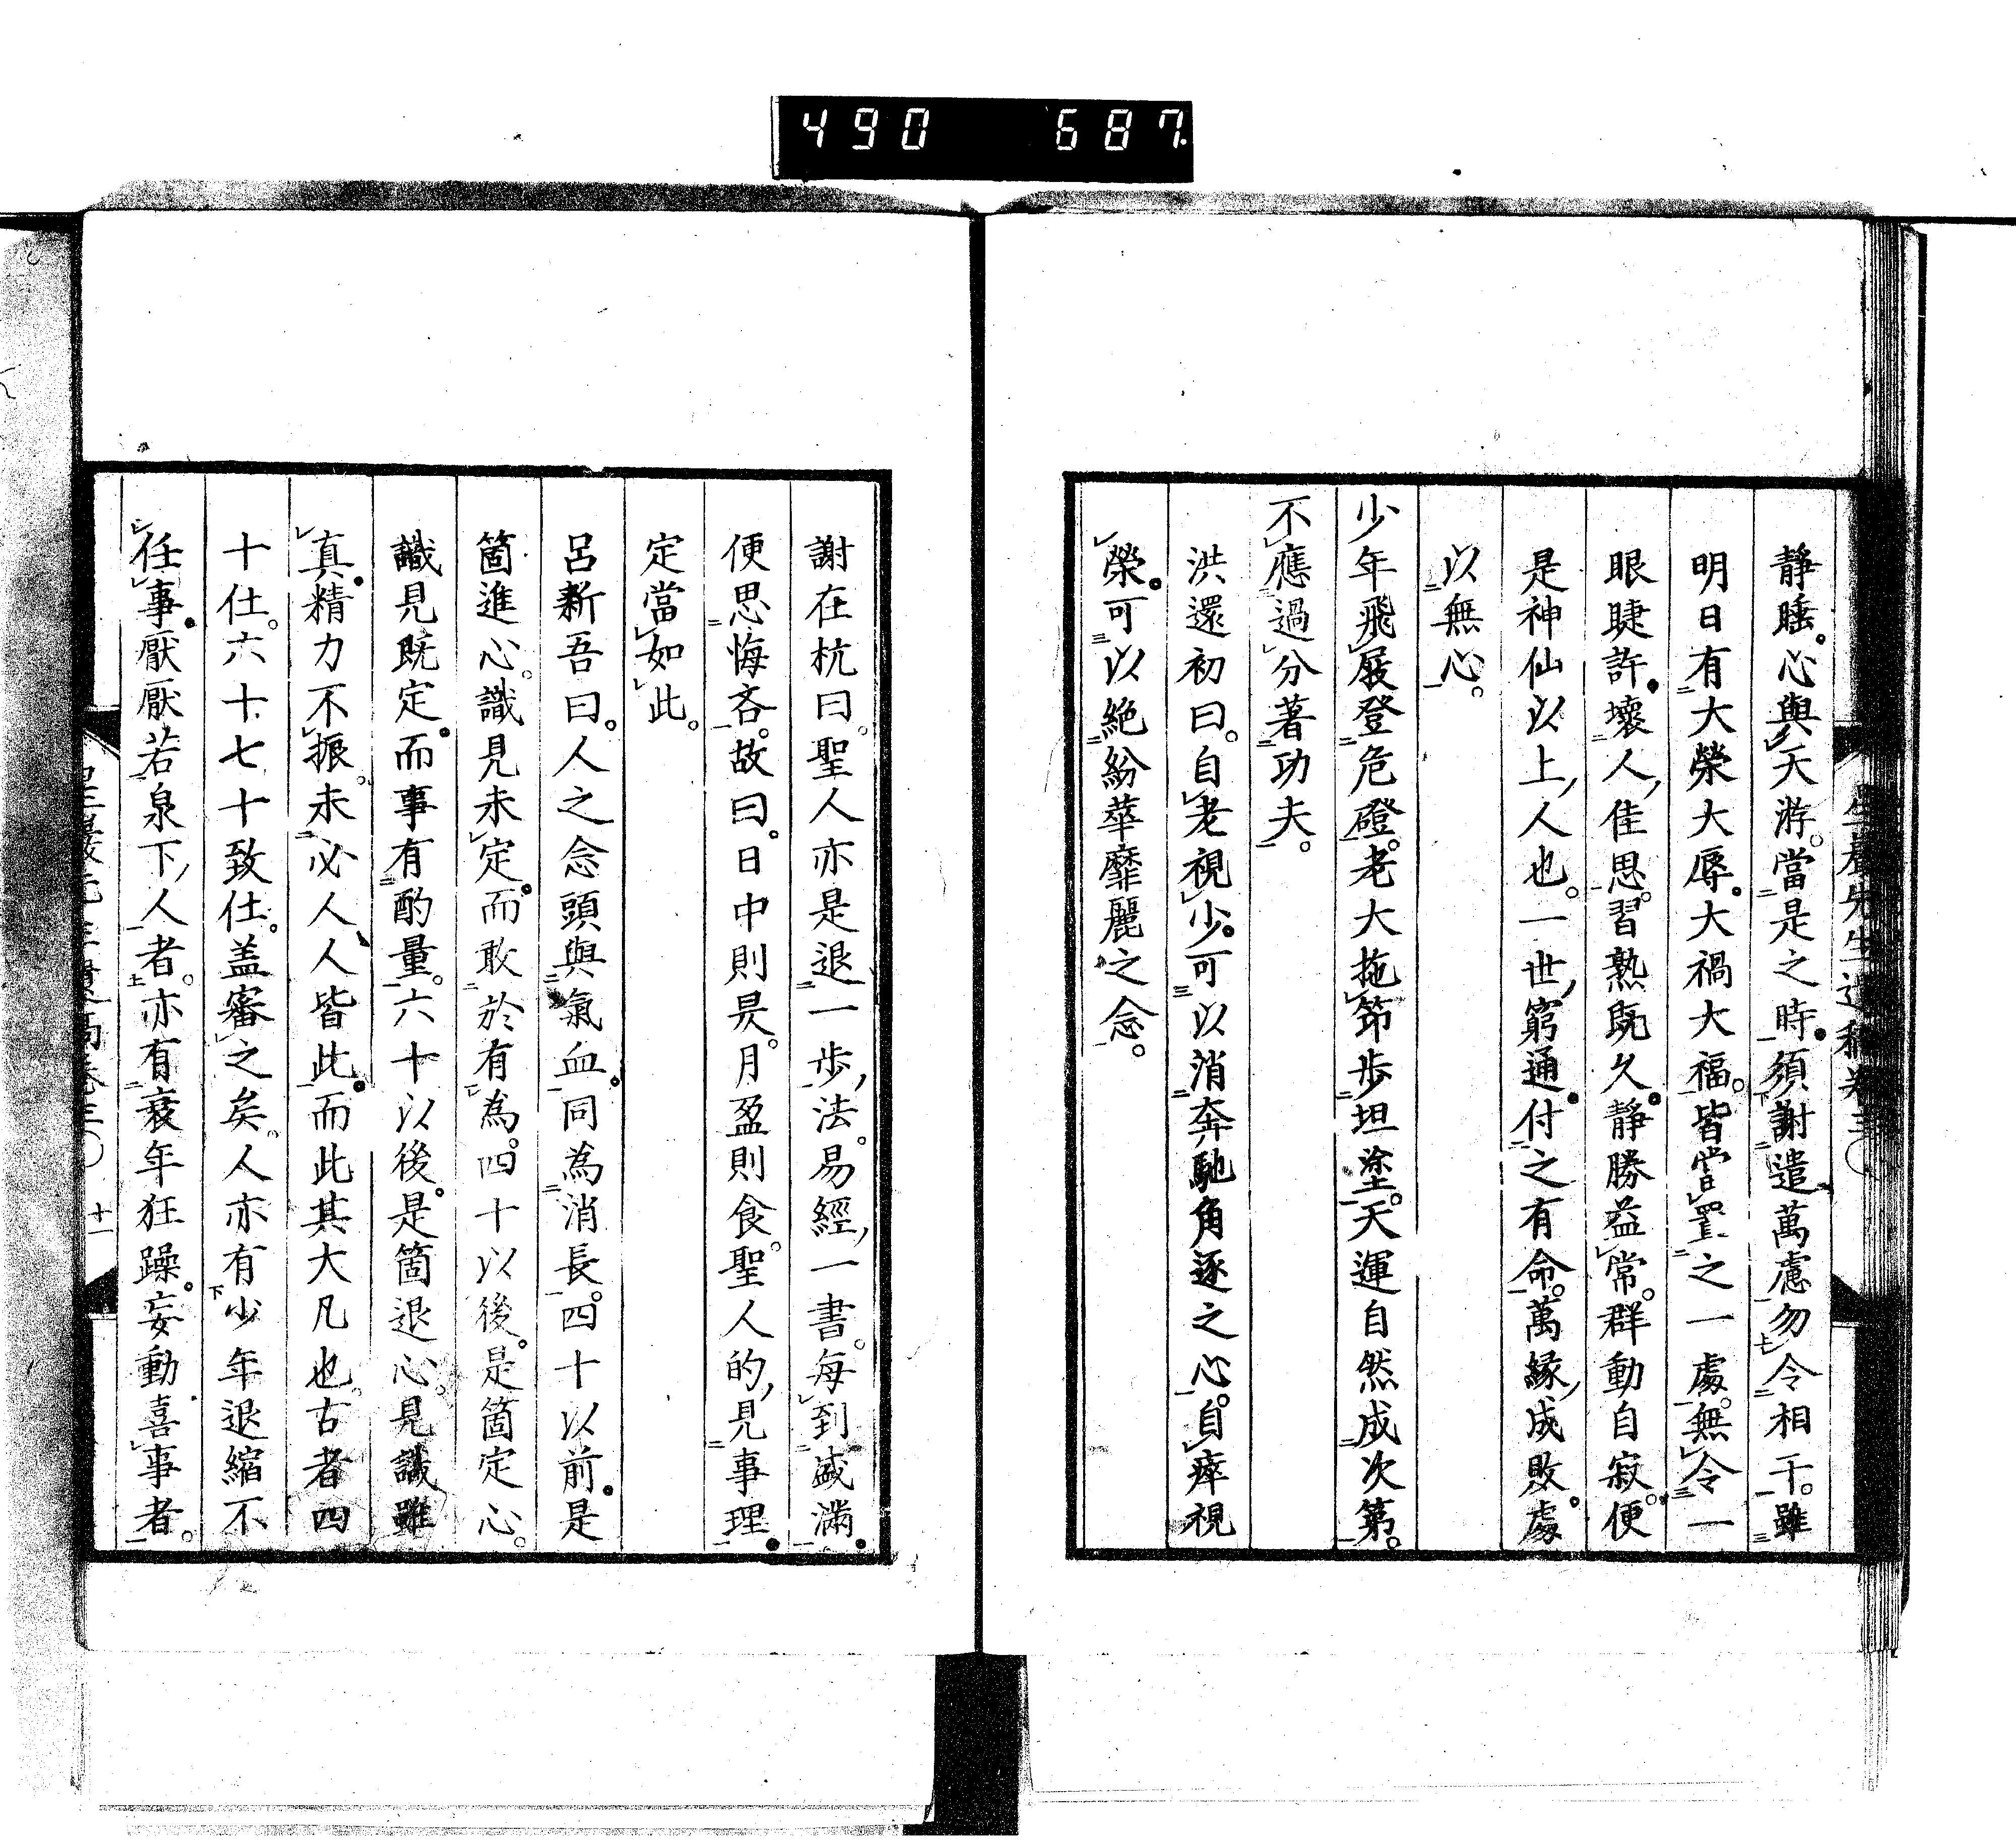 490 687
靜睡。心與天游。當是之時。須謝遣萬慮勿令相干。雖
明日有大榮大辱。大禍大福。皆當置之一處。無令一
眼睫許。壞人佳思。習熟既久。靜勝益常。群動自寂。便
是神仙以上人也。一世窮通。付之有命。萬緣成敗。處
以無心。
少年飛屐登危磴。老大拖笻步坦塗。天運自然成次第。
不應過分著功夫。
洪還初曰。自老視少。可以消奔馳角逐之心。自瘁視
榮。可以絶紛華靡麗之念。
謝在杭曰。聖人亦是退一步法。易經一書。每到盛滿。
便思悔吝。故曰。日中則昃。月盈則食。聖人的見事理。
定當如此。
呂新吾曰。人之念頭與氣血。同為消長。四十以前。是
箇進心。識見未定。而敢於有為。四十以後。是箇定心。
識見既定。而事有酌量。六十以後。是箇退心。見識雖
真。精力不振。未必人人皆此。而此其大凡也。古者四
十仕。六十七十致仕。盖審之矣。人亦有少年退縮不
任事。厭厭若泉下人者。亦有衰年狂躁。妄動喜事者。
十一